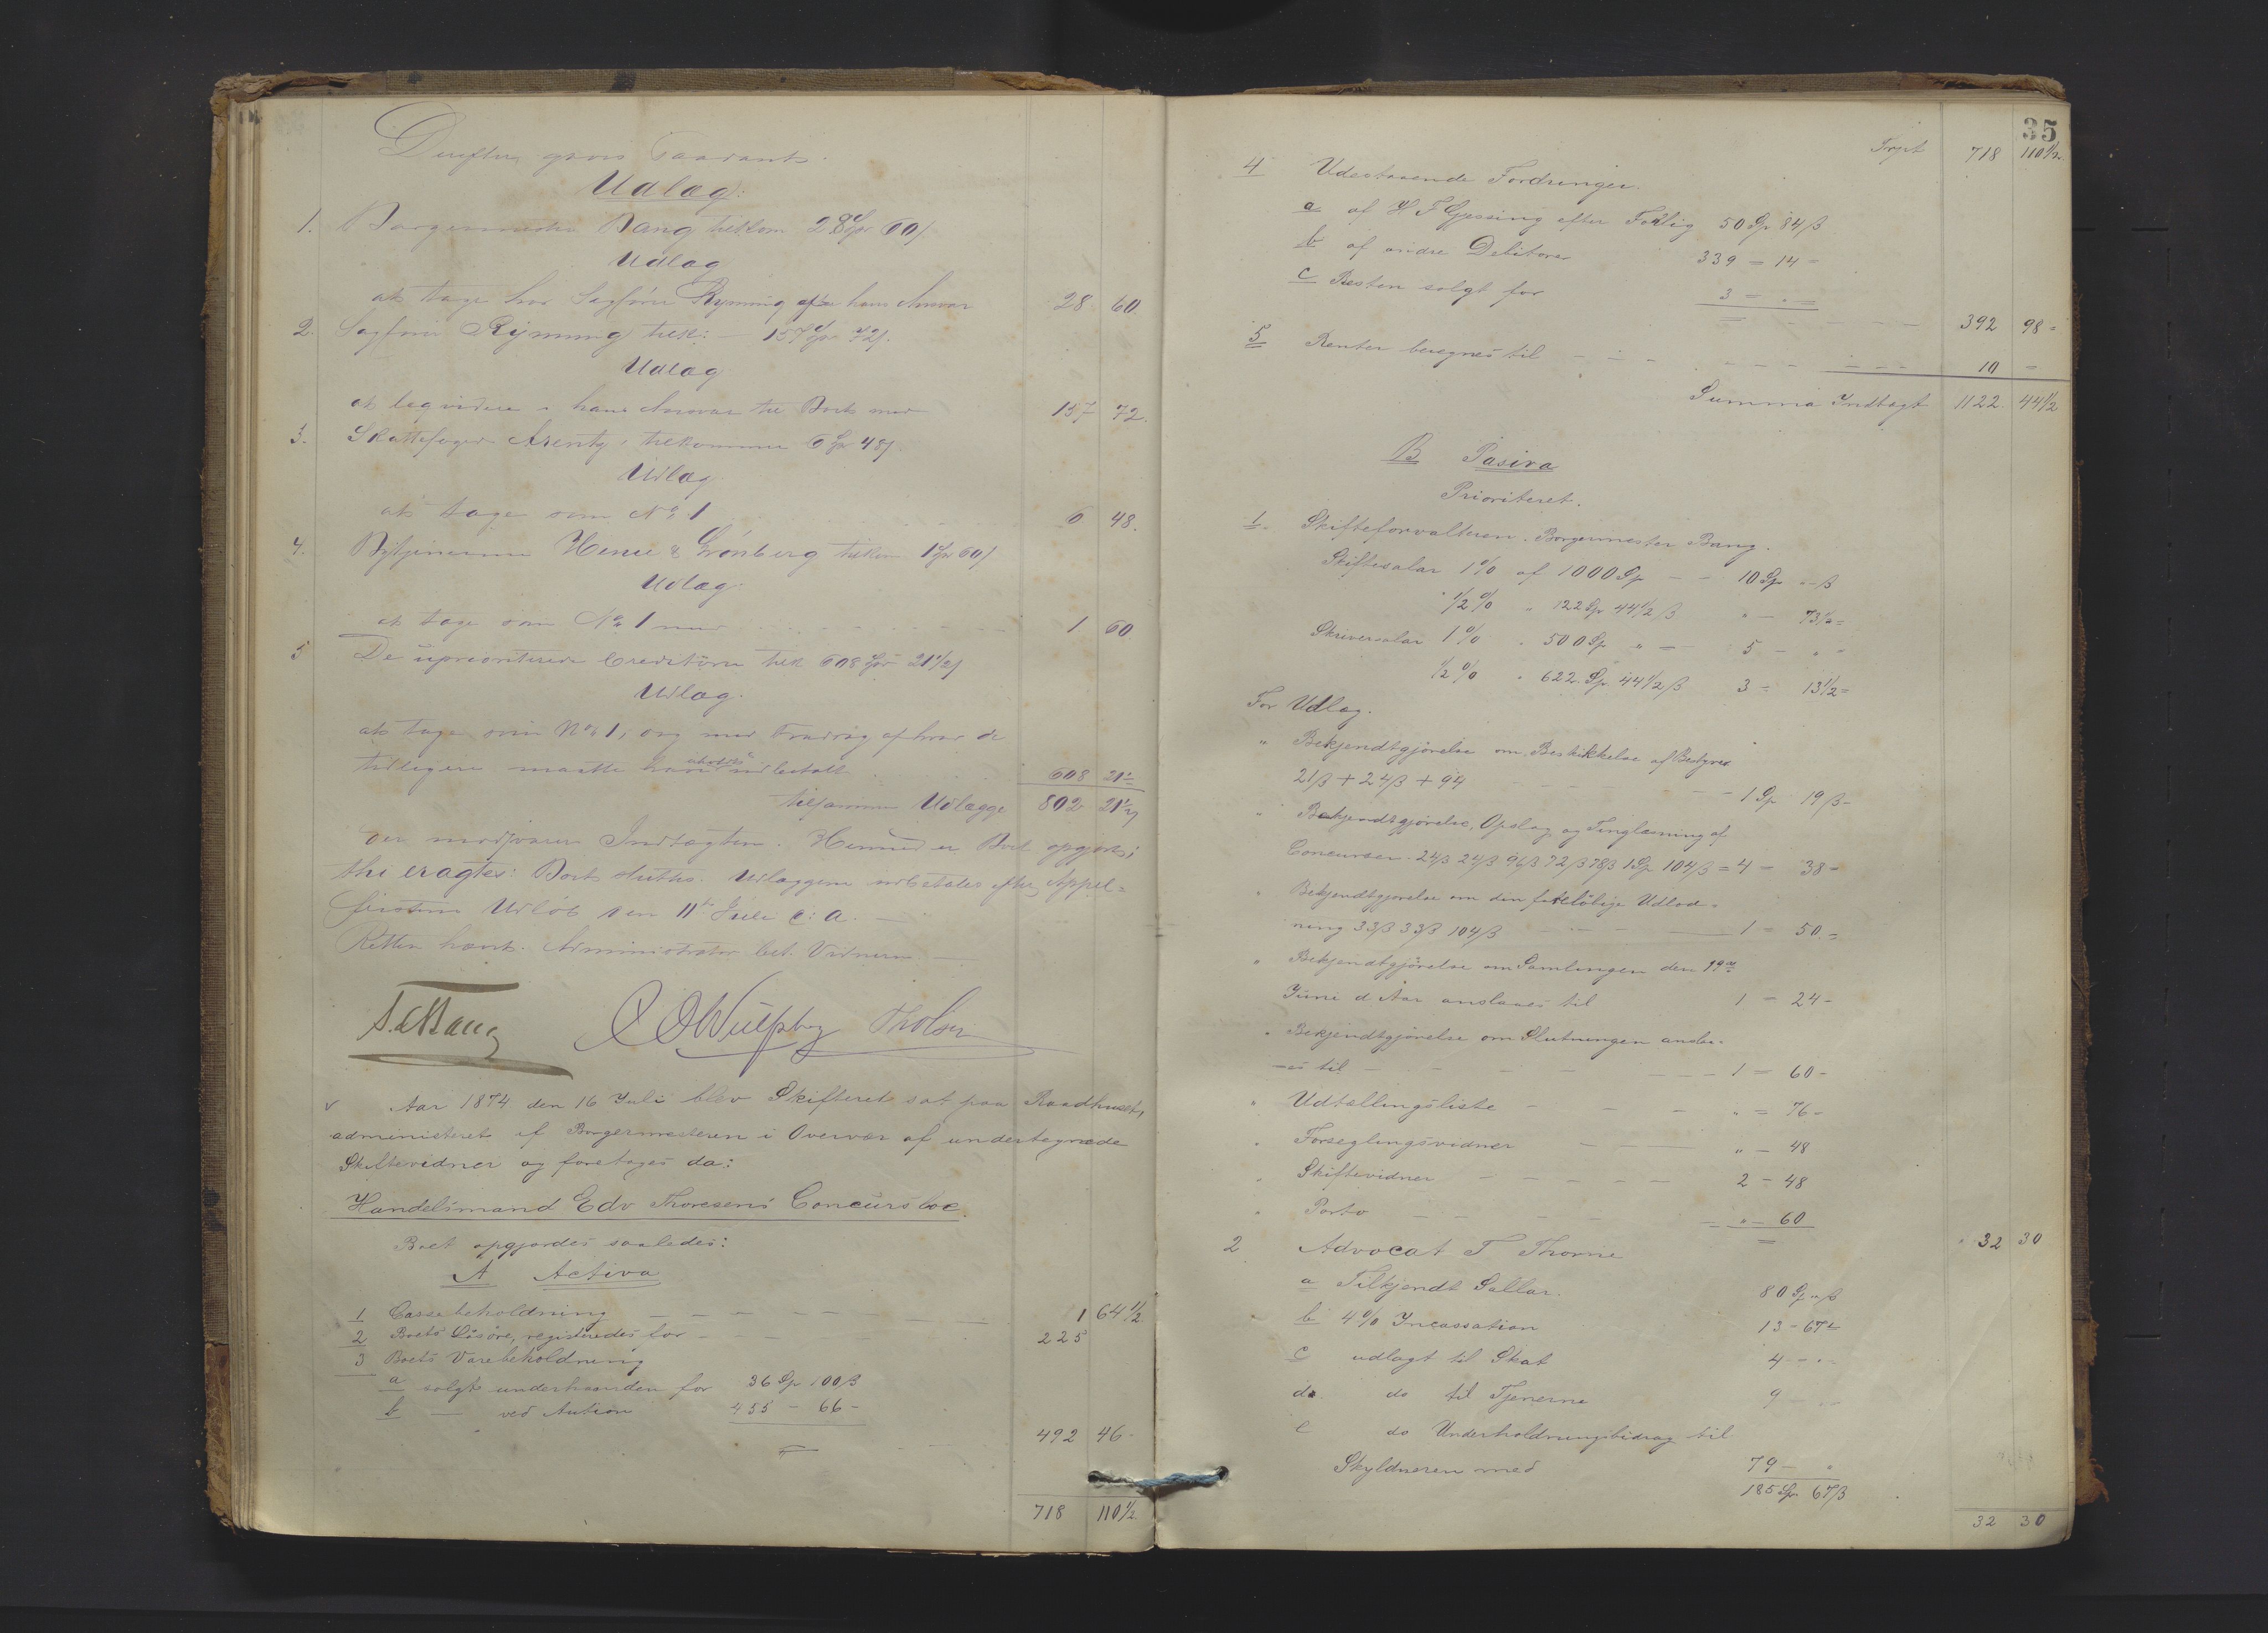 Derefter gaves saadant
Udlæg:
1. Borgermester Bang tilkom 28 Spd 60 ß
Udlæg
at tage hos Sagfører Rynning efter hans Ansvar 28 60
2. Sagfører Rynning tilk: — 157 Spd 72 ß.
Udlæg
at liqvidere i hans Ansvar til Boet med 157 72.
3. Skattefoged Arentz, tilkommer 6 Spd 48 ß.
Udlæg
at tage som No 1 6 48.
4. Bytjenerne Henie & Grönberg tilkom 1 Spd 60 ß
Udlæg
at tage som No 1 med 1 60
5 De uprioriterede Creditorer tilk 608 Spd 21 1/2 ß
Udlæg.
at tage som No 1, og med Fradrag af hvad de
tidligere maatte have udbetalt 608 21 1/2
tilsammen Udlægge 802 21 1/2
der modsvarer Indtægten. Hermed er Boet opgjort;
thi eragtes: Boet sluttes. Udlæggene udbetales efter Appel-
fristens Udløb den 11te Juli d: A. —
Retten hævet. Administrator bet. Vidnerne —
A. Bang Tholsen
v Aar 1874 den 16 Juli blev Skifteret sat paa Raadhuset,
administreret af Borgermesteren i Overvær af undertegnede
Skiftevidner og foretoges da:
Handelsmand Edv Thoresens Concursboe.
Boet opgjordes saaledes:
A Activa
1 Cassebeholdning — — — — 1 64 1/2
2 Boets Løsøre, registeredes for — — 225
3 Boets Varebeholdning
a solgt underhaanden for 36 Sp 100 ß
b — ved Aution 455 — 66 —
492 46 -
718 110 1/2
35
Trspt 718 110 1/2
4 Udestaaende Fordringer.
a af H F Gjessing efter Forlig 50 Sp 84 ß
b af andre Debitorer 339 = 14 =
c Resten solgt for 3 = " =
392 98 =
5 Renter beregnes til — — — 10 =
Summa Indtægt 1122 44 1/2
B Pasiva
Prioriteret.
1. Skifteforvalteren. Borgermester Bang.
Skiftesalar 1% af 1000 Sp — — 10 Sp " ß
1/2 % " 122 Sp 44 1/2 ß " — 73 1/2 =
Skriversalar 1% " 500 Sp " — 5 — " "
1/2 % " 622 Sp 44 1/2 ß 3 = 13 1/2 =
For Udlæg.
" Bekjendtgjørelse om Beskikkelse af Bestyrer
21 ß + 24 ß + 94 — — — 1 Sp 19 ß -
" Bekjendtgjørelse, Opslag og Tinglæsning af
Concursen. 24 ß 24 ß 96 ß 72 ß 78 ß 1 Sp 104 ß = 4 — 38 -
" Bekjendtgjørelse om den foreløbige Udlod-
ning 33 ß 33 ß 104 ß — — 1 = 50 =
" Bekjendtgjørelse om Samlingen den 19de
Juni d Aar anslaaes til 1 — 24 -
" Bekjendtgjørelse om Slutningen anslaa-
-es til — — — 1 = 60 -
" Udtællingsliste — — — " = 76 -
" Forseglingsvidner — — " — 48
" Skiftevidner — — — 2 — 48
" Porto — — — " — 60
" 32 30
2 Advocat T Thorne
a Tilkjendt Sallar. 80 Sp " ß
b 4% Incassation 13 — 67 =
c udlagt til Skat 4 — " -
do do til Tjenerne 9 — " -
e do Underholdningsbidrag til
Skyldneren med 79 — "
185 Sp. 67 ß
32 30